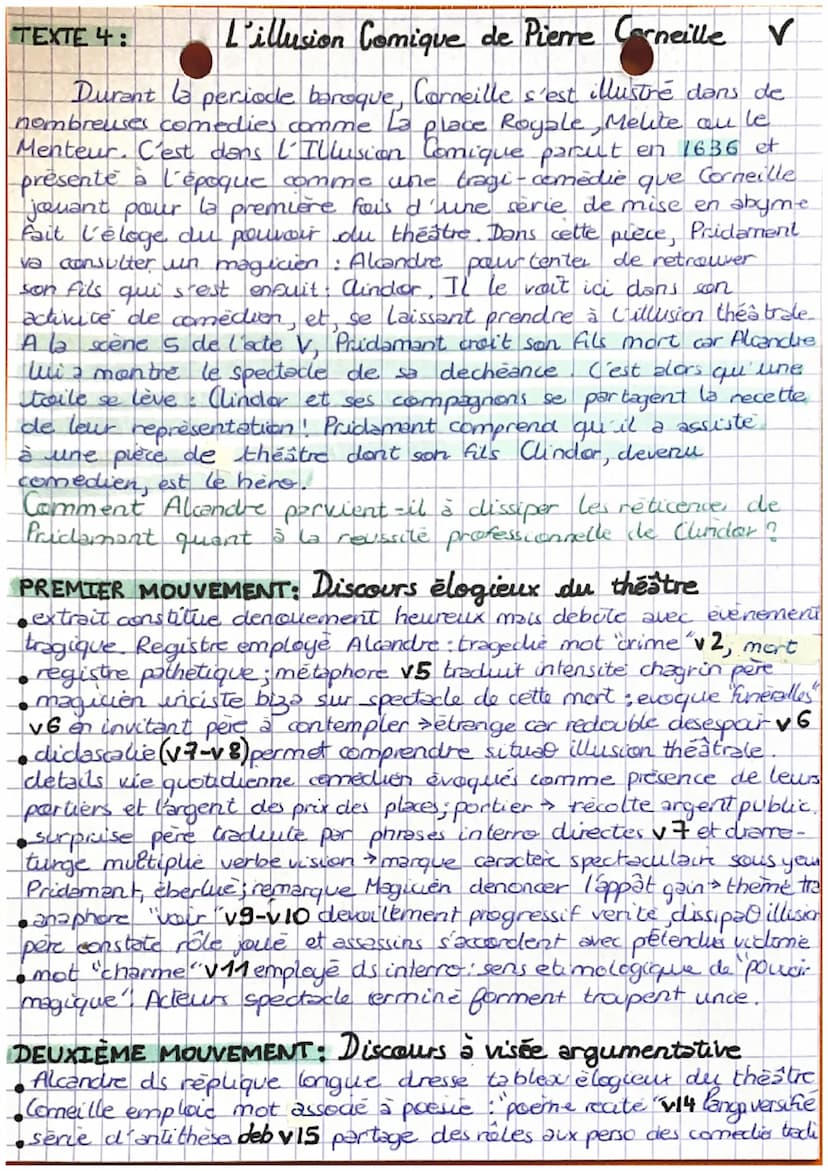 TEXTE 4: L'illusion Comique de Pierre Corneille V
Durant la periode baroque, Corneille s'est illustré dans de
nombreuses comedies comme La place Royale, Melite ou le
Menteur. C'est dans L'Illusion Comique parut en 1636 et
présenté à l'époque comme une tragi-comédie que Corneille
jouant pour la première fois d'une série de mise en abyme
fait l'éloge du pouvoir du théâtre. Dans cette pièce, Pridamant
va consulter un magicien : Alcandre pour tenter de retrouver
son fils qui s'est enfuit: Clindor. Il le voit ici dans son
activité de comédien, et, se laissant prendre à l'illusion théâtrale.
A la scène 5 de l'acte V, Pridamant croit son fils mort car Alcandre
lui a montré le spectacle de sa decheance. C'est alors qu'une
toile se lève : Clindor et ses compagnons se partagent la recette
de leur représentation! Pridamant comprend qu'il a assisté
à une pièce de théâtre dont son fils Clindor, devenu
comédien, est le héro.
Comment Alcandre parvient-il à dissiper les réticences de
Pridamant quant à la réussite professionnelle de Clindor?
PREMIER MOUVEMENT: Discours élogieux du théâtre
• extrait constitue denouement heureux mais debute avec évènement
tragique. Registre employé Alcandre: tragedie mot "crime" v2, mort
• registre pathétique; métaphore v5 traduit intensité chagrin père
• magicien insiste biza sur spectacle de cette mort; evoque "funerailles"
v6 en invitant père à contempler → étrange car redouble desespoir v6
• didascalie (v7-v8) permet comprendre situa° illusion théâtrale.
détails vie quotidienne comédien évoqués comme présence de leurs
portiers et l'argent des prix des places; portier → récolte argent public.
• surprise père traduite par phrases interro directes v7 et drama-
turge multiplie verbe vision → marque caractère spectaculaire sous yeux
Pridamant, éberlué; remarque Magicien denoncer l'appât gain → thème tra
• anaphore "voir" v9-v10 devoilement progressif verité, dissipa° illusion
père constate rôle joué et assassins s'accordent avec pétendus victime
• mot "charme" v11 employé ds interro: sens etimologique de "pouvoir
magique"! Acteurs spectacle terminé forment troupent unie.
DEUXIÈME MOUVEMENT: Discours à visée argumentative
• Alcandre ds réplique longue dresse tableau élogieux du théâtre
• Corneille emploie mot associé à poésie : "poème récité" v14 lang versifié
• série d'antithèses deb v15 partage des rôles aux perso des comedies tradi